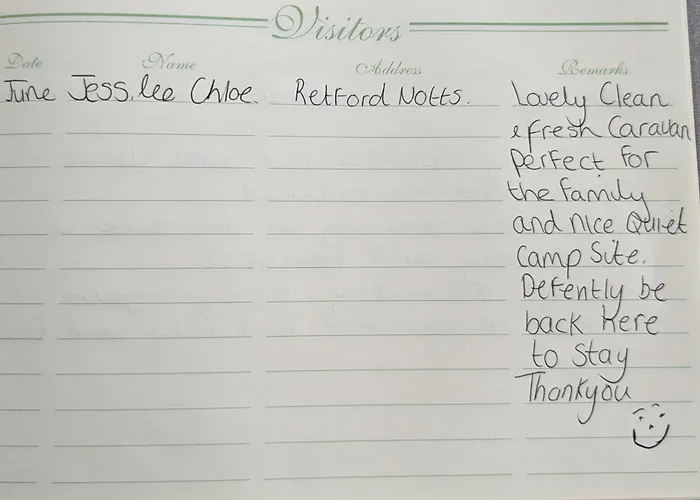 Visitors
Date Name Address Remarks
June Jess.lee Chloe. Retford Notts. Lovely Clean
& fresh Caravan
perfect for
the family
and nice Quiet
Camp Site.
Defently be
back here
to stay
Thankyou